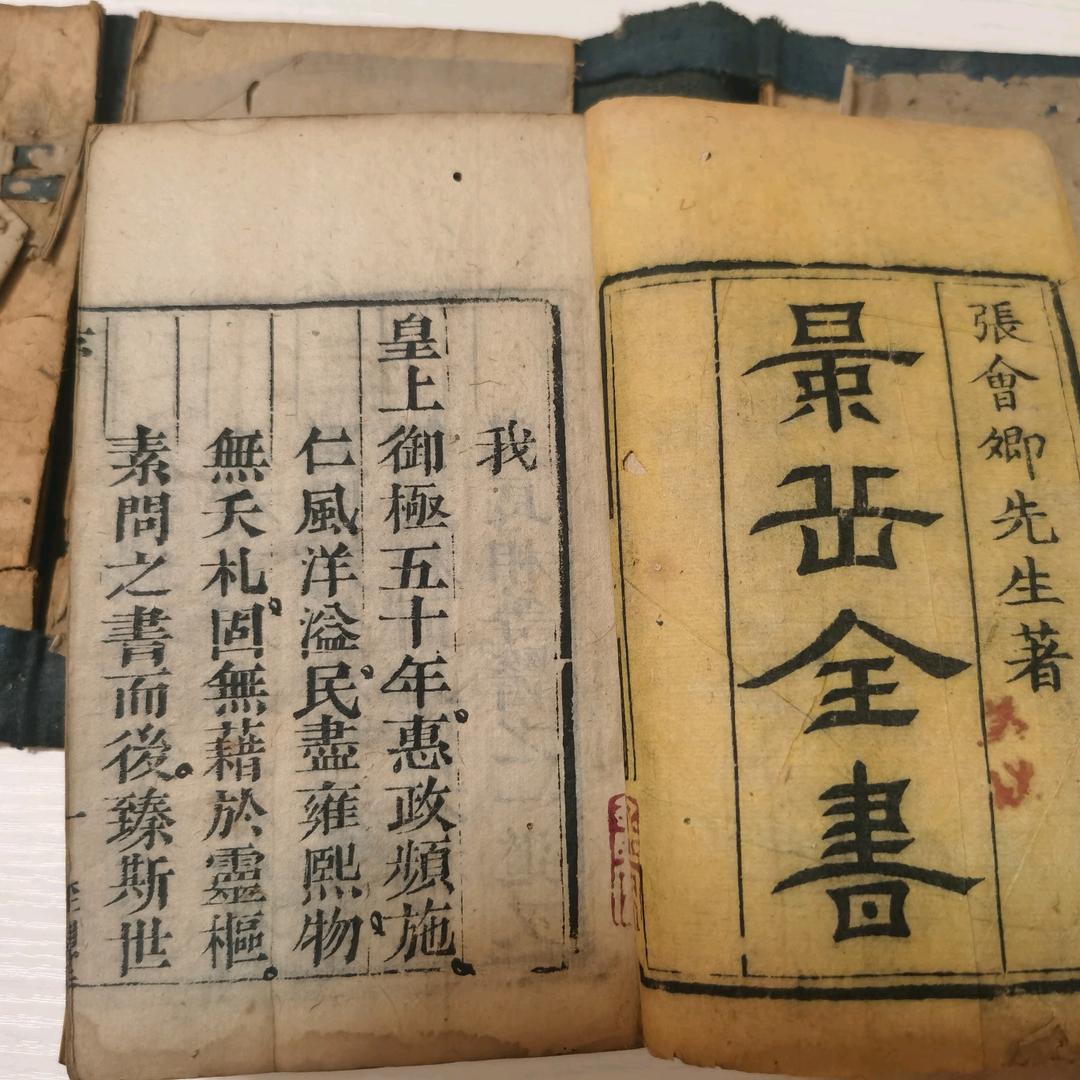 張會卿先生著
景岳全書
我
皇上御極五十年惠政頻施
仁風洋溢民盡雍熙物
無夭札固無藉於靈樞
素問之書而後臻斯世